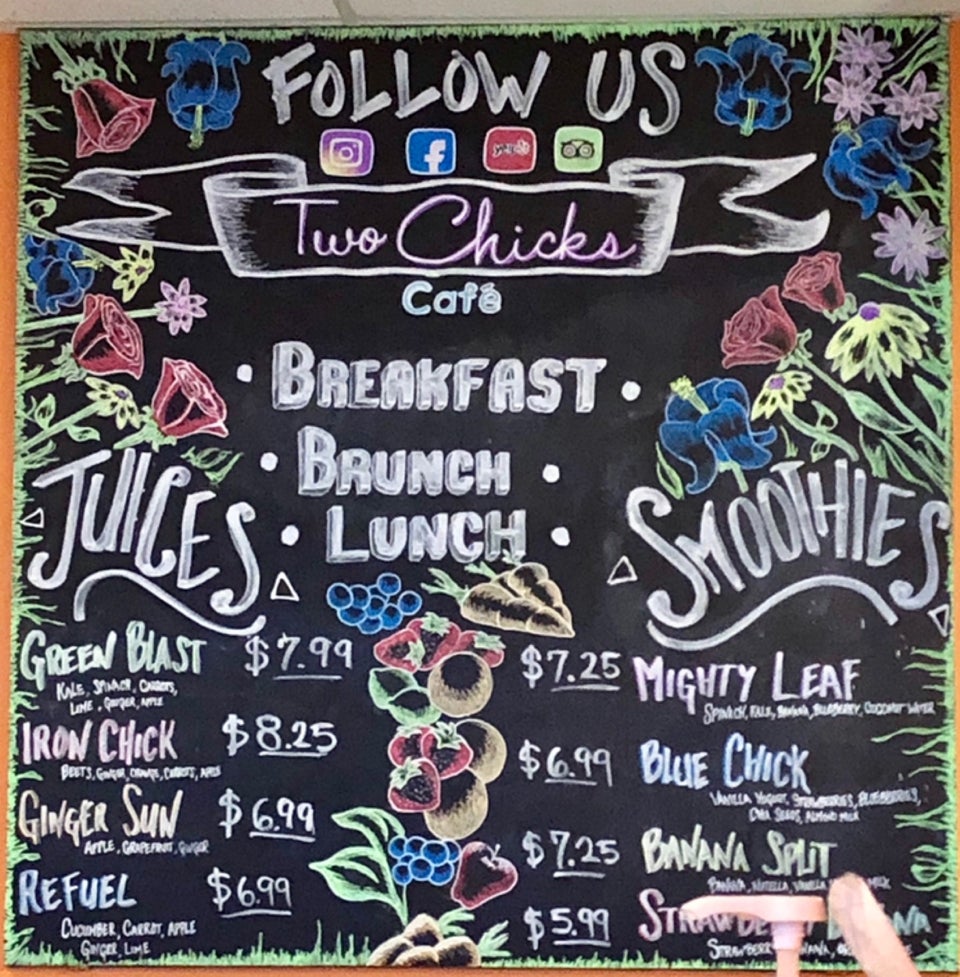 FOLLOW US
yelp
Two Chicks
Café
• BREAKFAST •
• BRUNCH •
• LUNCH •
JUICES
GREEN BLAST $7.99
KALE, SPINACH, CARROTS,
LIME, GINGER, APPLE
IRON CHICK $8.25
BEETS, GINGER, ORANGE, CARROTS, APPLE
GINGER SUN $6.99
APPLE, GRAPEFRUIT, GINGER
REFUEL $6.99
CUCUMBER, CARROT, APPLE
GINGER, LIME
SMOOTHIES
$7.25 MIGHTY LEAF
SPINACH, KALE, BANANA, BLUEBERRY, COCONUT WATER
$6.99 BLUE CHICK
VANILLA YOGURT, STRAWBERRIES, BLUEBERRIES,
CHIA SEEDS, ALMOND MILK
$7.25 BANANA SPLIT
BANANA, NUTELLA, VANILLA MILK
$5.99 STRAWBERRY BANANA